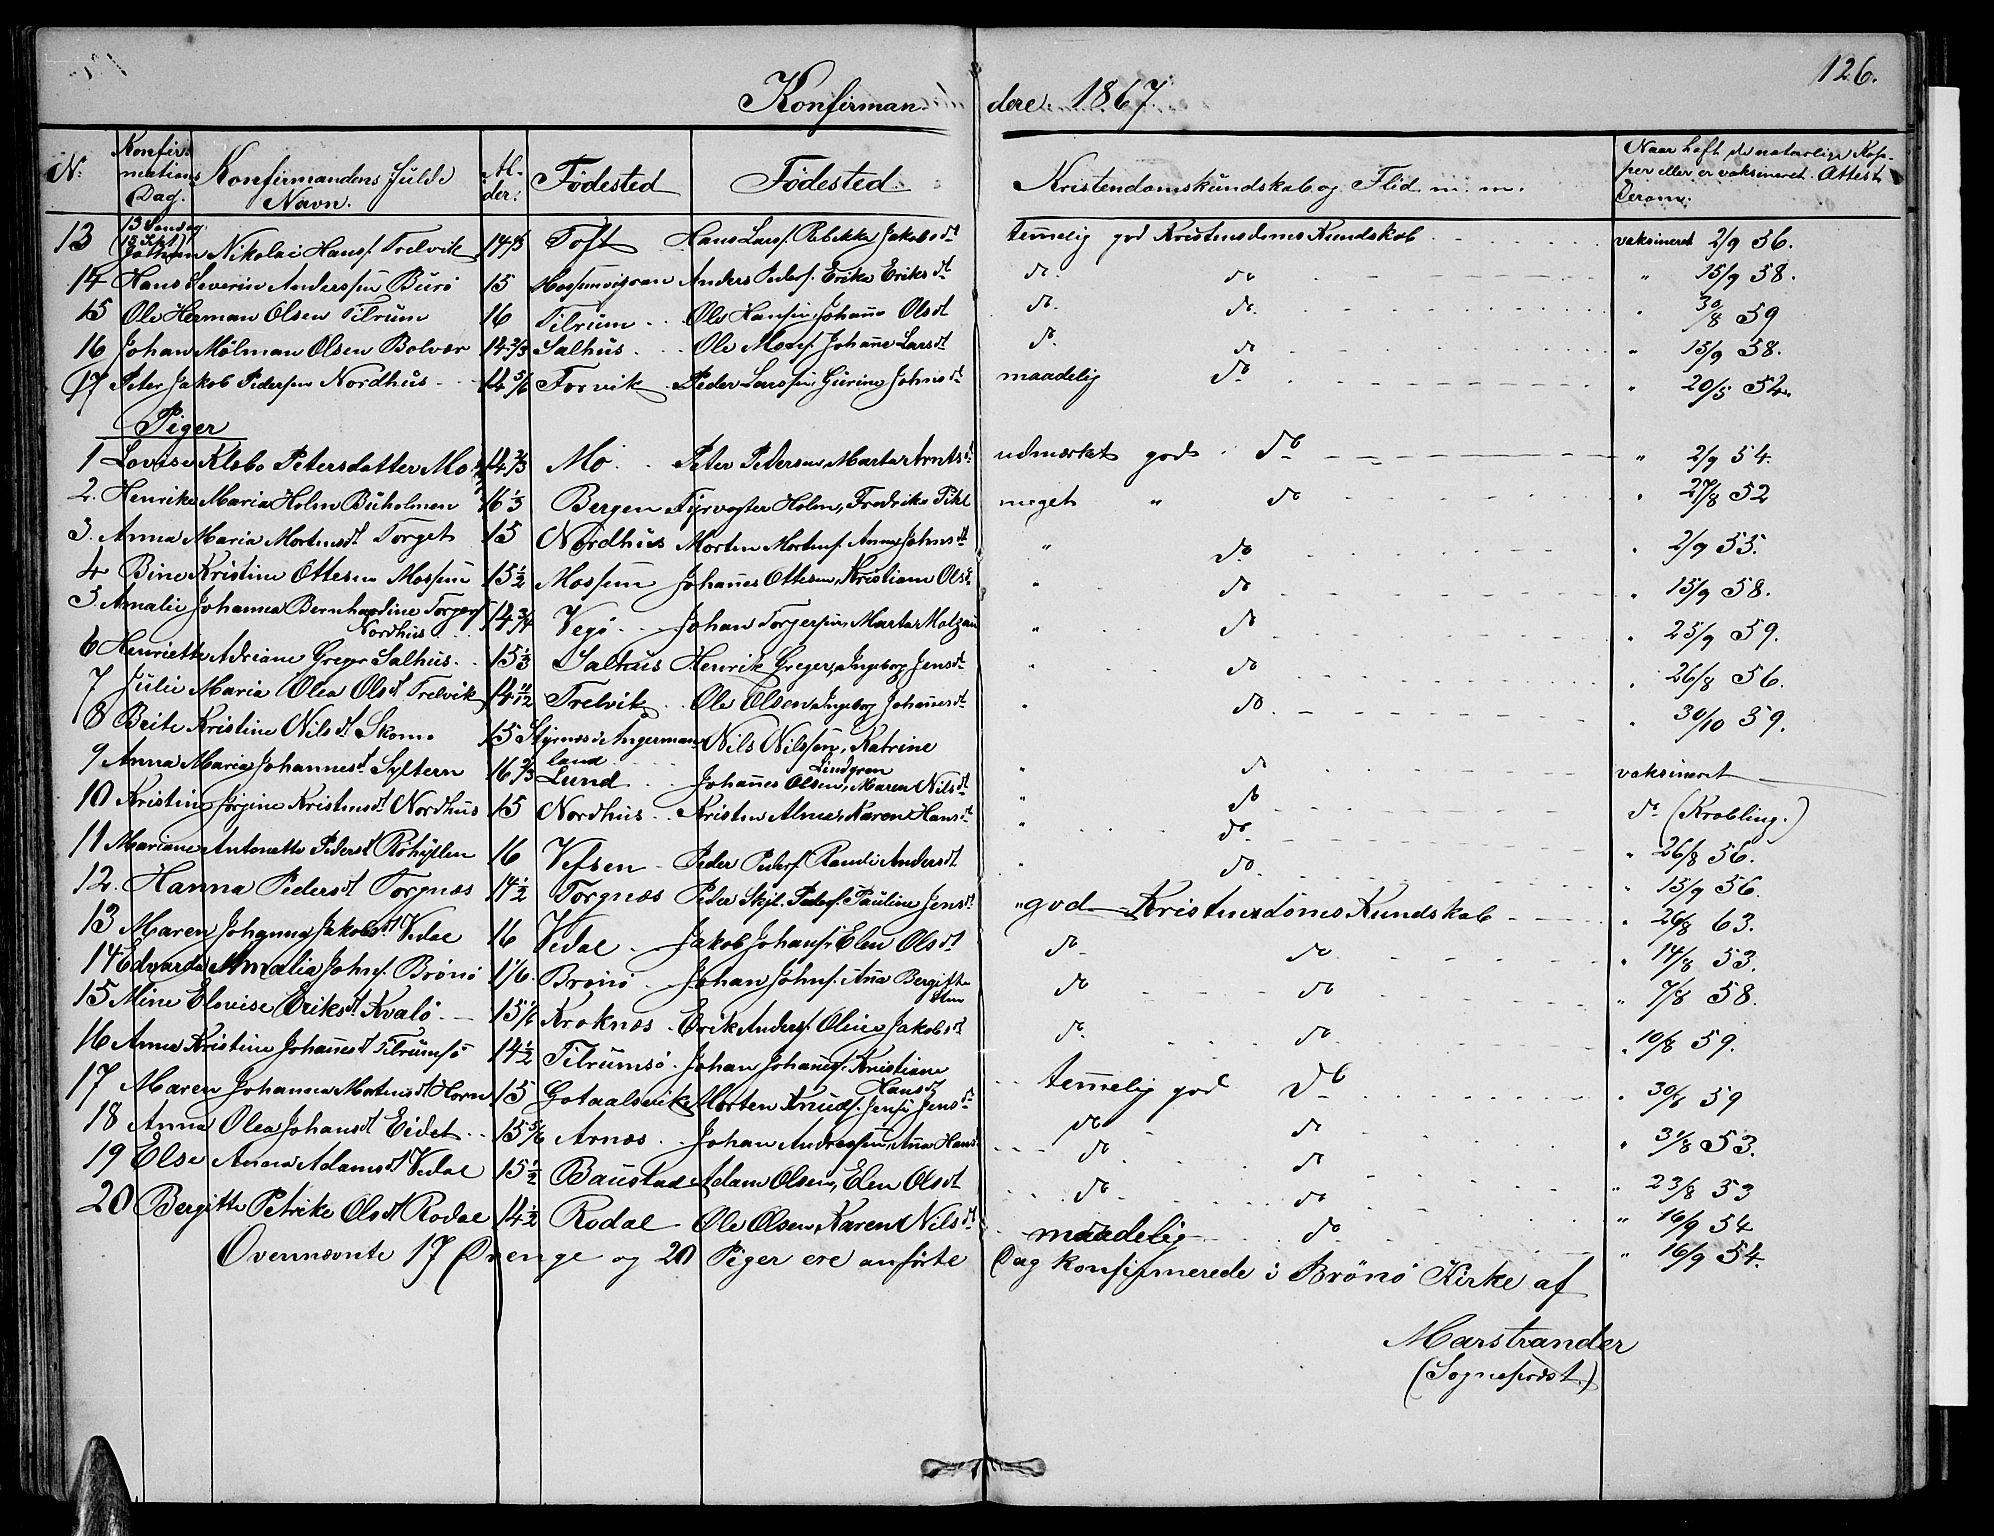 126.
Konfirmandere 1867.
N. Konfirmations Dag. Konfirmandens fulde Navn. Alder. Fødested Fødested. Kristendomskundskab og Flid m. m. Naar haft de naturlige Kopper eller er vaksineret. Attest Derom.
13 13 Søndag (15 Sept) Johan Nikolai Hanss. Trelvik 14 Toft Hans Larss. Rebekka Jakobsdt temelig god Kristendoms Kundskab vaksineret 2/9 56.
14 Hans Severin Anderssen Burø 15 Anders Peders. Erika Eriksdt do. do " 15/9 58.
15 Ole Herman Olsen Tilrum 16 Tilrum Ole Hansen, Johanna Olsdt do. do. " 30/8 59
16 Johan Mølman Olsen Bolvær 14 2/3 Salhus Ole Johanne Larsdt do. do " 15/9 58.
17 Peter Jakob Pedersen Nordhus 14 5/6 Forvik Peder Larssen, Gurine Johnsdt maadelig do " 20/5 54.
Piger
1 Lovise Klebo Petersdatter Mo 14 2/3 Mo Peter Pedersen, Marta Arntsdt udmærket god do " 2/9 54.
2. Henrike Maria Holm Buholmen 16 1/3 Bergen Fyrvogter Holm, Fredrike Pihl meget " do " 27/8 52
3. Anna Maria Mortensdt Torget 15 Nordhus Morten Mortens. Anna Johnsdt " do " 2/9 55.
4 Bine Kristine Ottesen Mossem 15 1/2 Mossem Johanes Ottesen, Kristiane Olsdt " do " 15/9 58.
5. Amalie Johanna Bernhardine Torgers Nordhus 14 3/4 Vegø Johan Torgersen, Marta Molzau " do " 25/9 59.
6 Henriette Adriane Greger Salhus 15 1/3 Salhus Henrik Greger, Ingeborg Jensdt " do " 26/8 56.
7 Julie Maria Olea Olsdt Trelvik 14 1/2 Trelvik Ole Olsen, Ingeborg Johanesdt " do " 30/10 59.
8 Beite Kristine Nilsdt Skomo 15 Styrnæs i Angermanland Nils Nilssen, Katrine Lindgren " do vaksineret
9 Anna Maria Johannesdt Syltern 16 2/3 Lund Johanes Olsen, Maren Nilsdt " do do (Krobling.)
10 Kristine Jørgine Kristensdt Nordhus 15 Nordhus Kristen Karen Hansdt " do " 26/8 56.
11 Mariane Antonette Pedersdt Røhyllen 16 Vefsen Peder Peders. Randi Andersdt " do " 15/9 56
12. Hanna Pedersdt Torgnæs 14 1/2 Torgnæs Peder Peders. Pauline Jensdt " god Kristendoms Kundskab " 26/8 63.
13 Maren Johanna Jakobsdt Vedal 16 Vedal Jakob Johans. Elen Olsdt do do " 14/8 53.
14 Edvarda Amalia Johns. Brønø 16. Brønø Johan Johns. Ana Bergitte do do " 7/8 58.
15 Mine Elovise Eriksdt Kvalø 15 1/6 Kroknæs Erik Anders. Oline Jakobsdt do do " 10/8 59.
16 Anna Kristine Johanesdt Tilrumsø 14 1/2 Tilrumsø Johan Johanes. Kristiane Hansdt temelig god do " 30/8 59
17 Maren Johanna Mortensdt Horn 15 Morten Knuds. Jensdt do do " 31/8 53.
18 Anna Olea Johansdt Eidet 15 5/6 Arnæs Johan Andreassen, Ana Hansdt do do " 23/8 53
19 Else Anna Adamsdt Vedal 15 1/2 Baustad Adam Olsen, Elen Olsdt do do " 16/9 54
20 Bergitte Petrike Olsdt Rodal 14 1/2 Rodal Ole Olsen, Karen Nilsdt maadelig do " 16/9 54.
Ovennævnte 17 Drenge og 20 Piger ere anførte Dag konfirmerede i Brønø Kirke af
Marstrander
(Sogneprest.)